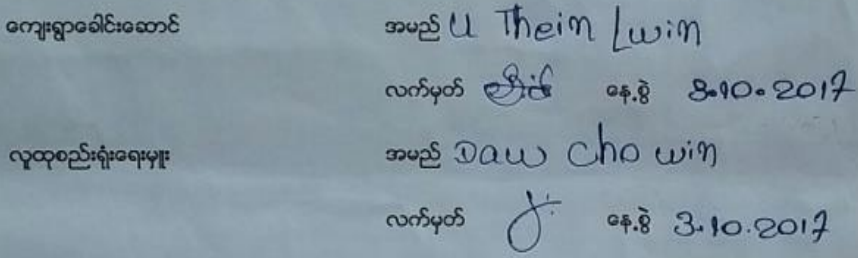 ကျေးရွာခေါင်းဆောင် အမည် U Thein Lwin
လက်မှတ် နေ့စွဲ 3.10.2017
လူထုစည်းရုံးရေးမှူး အမည် Daw Cho win
လက်မှတ် နေ့စွဲ 3.10.2017